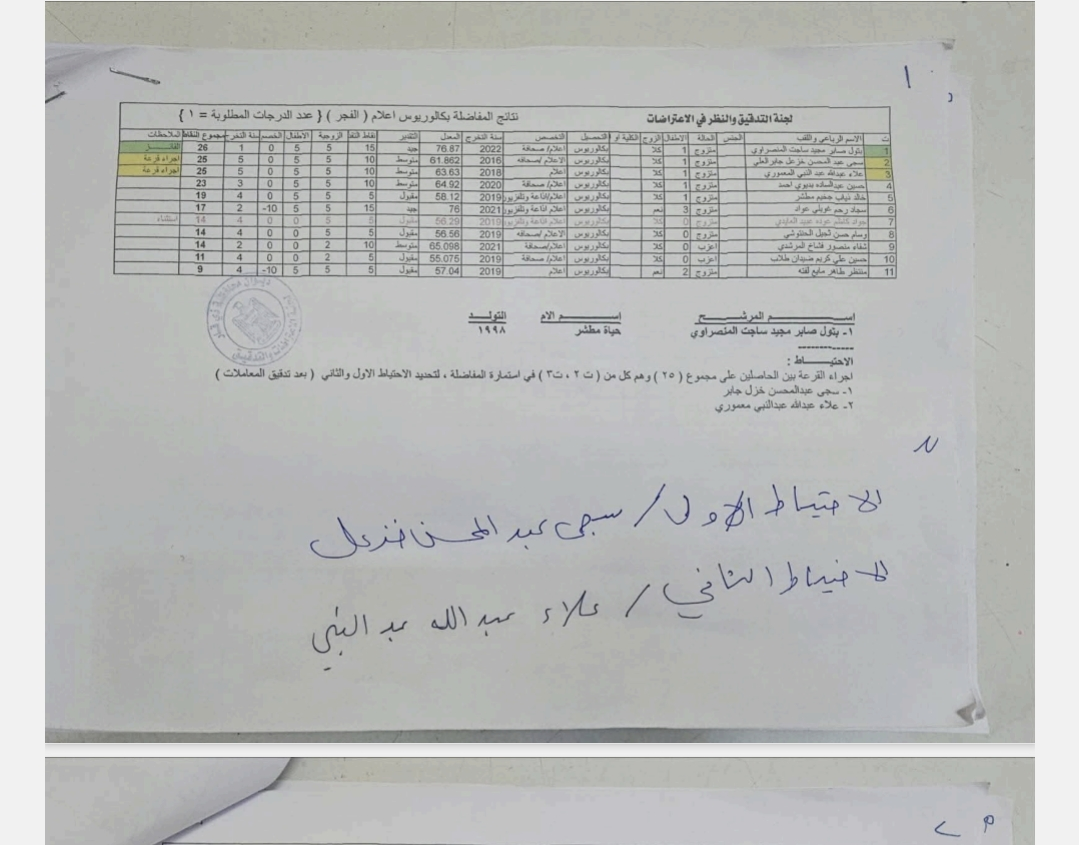 ١
لجنة التدقيق والنظر في الاعتراضات نتائج المفاضلة بكالوريوس اعلام ( الفجر ) { عدد الدرجات المطلوبة = ١ }
ت الاسم الرباعي واللقب الجنس الحالة الاطفال الزوج الكلية او التحصيل التخصص سنة التخرج المعدل التقدير نقاط التقد الزوجية الاطفال الخصم سنة التخرج مجموع النقاط الملاحظات
1 بتول صابر مجيد ساجت المنصراوي متزوج 1 كلا بكالوريوس اعلام/ صحافة 2022 76.87 جيد 15 5 5 0 1 26 الفائــز
2 سجى عبد المحسن خزعل جابر العلي متزوج 1 كلا بكالوريوس الاعلام /صحافه 2016 61.862 متوسط 10 5 5 0 5 25 اجراء قرعة
3 علاء عبدالله عبد النبي المعموري متزوج 1 كلا بكالوريوس اعلام 2018 63.63 متوسط 10 5 5 0 5 25 اجراء قرعة
4 حسين عبدالساده بديوي احمد متزوج 1 كلا بكالوريوس اعلام/ صحافة 2020 64.92 متوسط 10 5 5 0 3 23
5 خالد ذياب جخيم مطشر متزوج 1 كلا بكالوريوس اعلام/اذاعة وتلفزيون 2019 58.12 مقبول 5 5 5 0 4 19
6 سجاد رحم غويلي عواد متزوج 3 نعم بكالوريوس اعلام اذاعة وتلفزيون 2021 76 جيد 15 5 5 -10 2 17
7 جواد كاظم عوده عبيد متزوج 0 كلا بكالوريوس اعلام اذاعة وتلفزيون 2019 56.29 مقبول 5 5 0 0 4 14 استثناء
8 وسام حسن ثجيل متزوج 0 كلا بكالوريوس الاعلام /صحافة 2019 56.56 مقبول 5 5 0 0 4 14
9 شفاء منصور فشاخ المرشدي اعزب 0 كلا بكالوريوس اعلام/صحافة 2021 65.098 متوسط 10 2 0 0 2 14
10 حسين علي كريم ضيدان طلاب اعزب 0 كلا بكالوريوس اعلام/ صحافة 2019 55.075 مقبول 5 2 0 0 4 11
11 منتظر طاهر مايع لفته متزوج 2 نعم بكالوريوس اعلام 2019 57.04 مقبول 5 5 5 -10 4 9
اســـم المرشـــح اســـم الام التولد
١- بتول صابر مجيد ساجت المنصراوي حياة مطشر ١٩٩٨
الاحتيـــاط :
اجراء القرعة بين الحاصلين على مجموع ( ٢٥ ) وهم كل من ( ت ٢ ، ت٣ ) في استمارة المفاضلة ، لتحديد الاحتياط الاول والثاني ( بعد تدقيق المعاملات )
١- سجى عبدالمحسن خزل جابر
٢- علاء عبدالله عبدالنبي معموري
الاحتياط الاول / سجى عبد المحسن خزعل
الاحتياط الثاني / علاء عبد الله عبد النبي